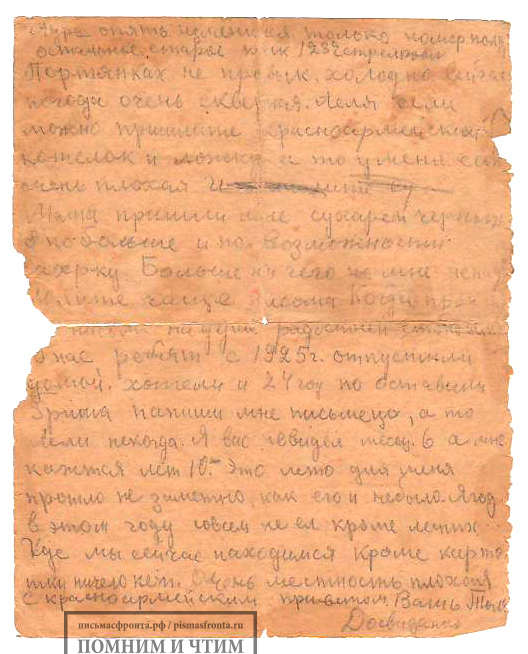 опять только номер
остальное старое 1232 стрелков
Портянках не привык. холодно сейчас
погода очень скверная. Леля если
можно пришлите красноармейский
котелок и ложку а то у меня
очень плохая и
Мама пришли мне сухарей черных
побольше и по возможности
махорку. Больше ни чего мне
чаще письма
на душе радостней
у нас ребят с 1925г. отпустили
домой. хотели и 24 год но оставили
Гриша напиши мне письмецо, а то
Лели некогда. Я вас не видел месяц. 6 а мне
кажется лет 10. Это лето для меня
прошло не заметно, как его и небыло. Ягод
в этом году совсем не ел кроме
Где мы сейчас находимся кроме карто
шки ничего нет. Очень местность плохая
с красноармейским приветом. Ваш Толя
Досвидание
письмасфронта.рф / pismasfronta.ru
ПОМНИМ И ЧТИМ